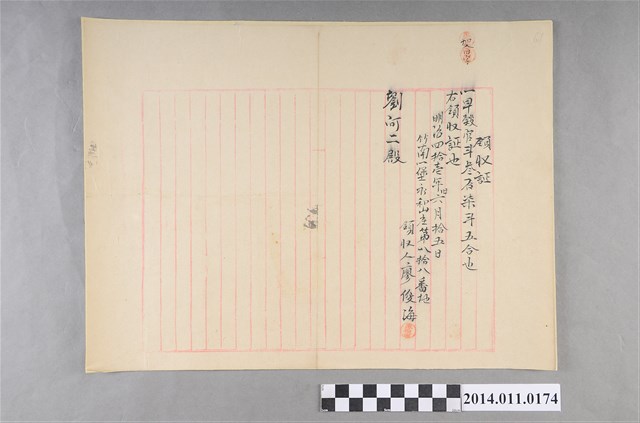 領收証
一早穀官斗叁石柒斗五合也
右領收証也
明治四拾壱年六月拾五日
竹南一堡永和山庄第八拾八番地
領收人廖俊海
劉河二殿
2014.011.0174